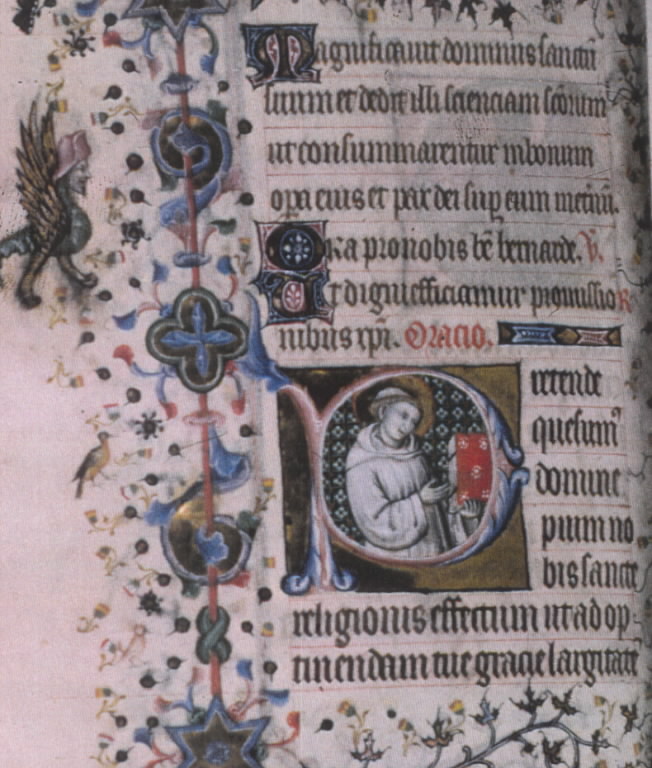 Magnificauit dominus sanctū
suum et dedit illi scienciam scōrum
ut consummarentur in bonum
opa eius et pax dei sup eum metuū.
Ora pro nobis bē bernarde. V̄.
Ut digni efficiamur promissio R
nibus xpi. Oracio.
Pretende
quesum᷒
domine
pium no
bis sancte
religionis effectum ut ad op
tinendam tue gracie largitatē